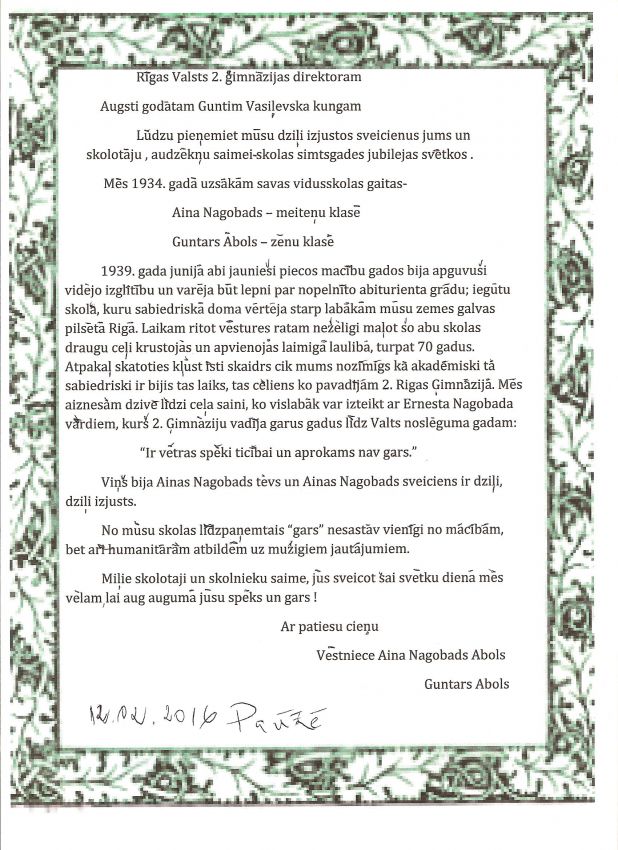 Rīgas Valsts 2. ģimnāzijas direktoram
Augsti godātam Guntim Vasiļevska kungam
Lūdzu pieņemiet mūsu dziļi izjustos sveicienus jums un
skolotāju , audzēkņu saimei-skolas simtsgades jubilejas svētkos .
Mēs 1934. gadā uzsākām savas vidusskolas gaitas-
Aina Nagobads – meiteņu klasē
Guntars Ābols – zēnu klasē
1939. gada junijā abi jaunieši piecos macību gados bija apguvuši
vidējo izglītību un varēja būt lepni par nopelnīto abiturienta grādu; iegūtu
skolā, kuru sabiedriskā doma vērtēja starp labākām mūsu zemes galvas
pilsētā Rigā. Laikam ritot vēstures ratam nežēligi maļot šo abu skolas
draugu ceļi krustojās un apvienojās laimigā laulibā, turpat 70 gadus.
Atpakaļ skatoties kļust īsti skaidrs cik mums nozīmīgs kā akadēmiski tā
sabiedriski ir bijis tas laiks, tas cēliens ko pavadījām 2. Rigas Ģimnāzijā. Mēs
aiznesām dzivē līdzi ceļa saini, ko vislabāk var izteikt ar Ernesta Nagobada
vārdiem, kurš 2. Ģimnāziju vadīja garus gadus līdz Valts noslēguma gadam:
“Ir vētras spēki ticībai un aprokams nav gars.”
Viņš bija Ainas Nagobads tēvs un Ainas Nagobads sveiciens ir dziļi,
dziļi izjusts.
No mūsu skolas līdzpaņemtais “gars” nesastāv vienīgi no mācībām,
bet arī humanitārām atbildēm uz mužigiem jautājumiem.
Miļie skolotaji un skolnieku saime, jūs sveicot šai svētku dienā mēs
vēlam lai aug augumā jūsu spēks un gars !
Ar patiesu cieņu
Vēstniece Aina Nagobads Abols
Guntars Abols
12.02.2016 Parīzē